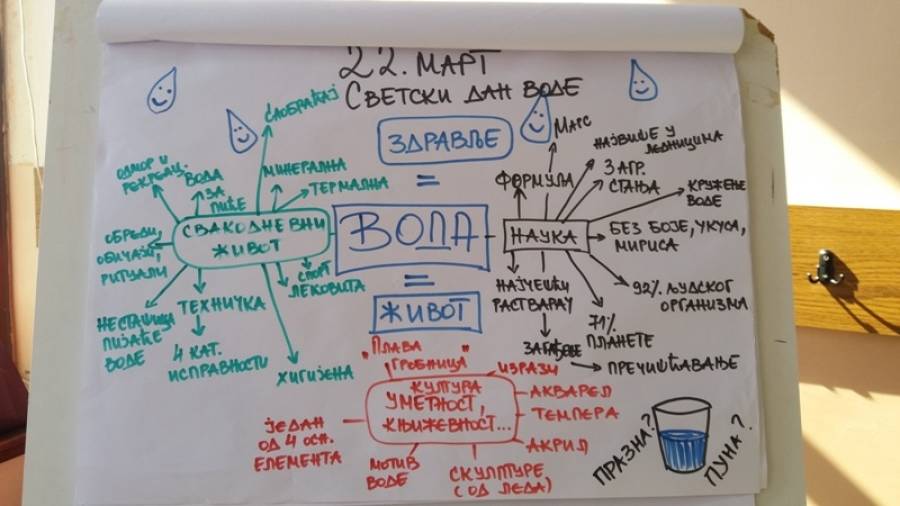 22. МАРТ
СВЕТСКИ ДАН ВОДЕ
ЗДРАВЉЕ
=
ВОДА
=
ЖИВОТ
СВАКОДНЕВНИ
ЖИВОТ
САОБРАЋАЈ
ОДМОР И
РЕКРЕАЦ.
ВОДА
ЗА
ПИЋЕ
МИНЕРАЛНА
ТЕРМАЛНА
ОБРЕДИ,
ОБИЧАЈИ,
РИТУАЛИ
НЕСТАШИЦА
ПИЈАЋЕ
ВОДЕ
ТЕХНИЧКА
4 КАТ.
ИСПРАВНОСТИ
ХИГИЈЕНА
СПОРТ
ЛЕКОВИТА
НАУКА
ФОРМУЛА
МАРС
НАЈВИШЕ У
ЛЕДНИЦИМА
3 АГР.
СТАЊА
КРУЖЕЊЕ
ВОДЕ
БЕЗ БОЈЕ, УКУСА,
МИРИСА
92% ЉУДСКОГ
ОРГАНИЗМА
71%
ПЛАНЕТЕ
НАЈЧЕШЋИ
РАСТВАРАЧ
ЗАГАЂЕЊЕ
ПРЕЧИШЋАВАЊЕ
КУЛТУРА
УМЕТНОСТ,
КЊИЖЕВНОСТ...
„ПЛАВА
ГРОБНИЦА"
ИЗРАЗИ
АКВАРЕЛ
ТЕМПЕРА
АКРИЛ
СКУЛПТУРЕ
(ОД ЛЕДА)
МОТИВ
ВОДЕ
ЈЕДАН
ОД 4 ОСН.
ЕЛЕМЕНТА
ПРАЗНА?
ПУНА?